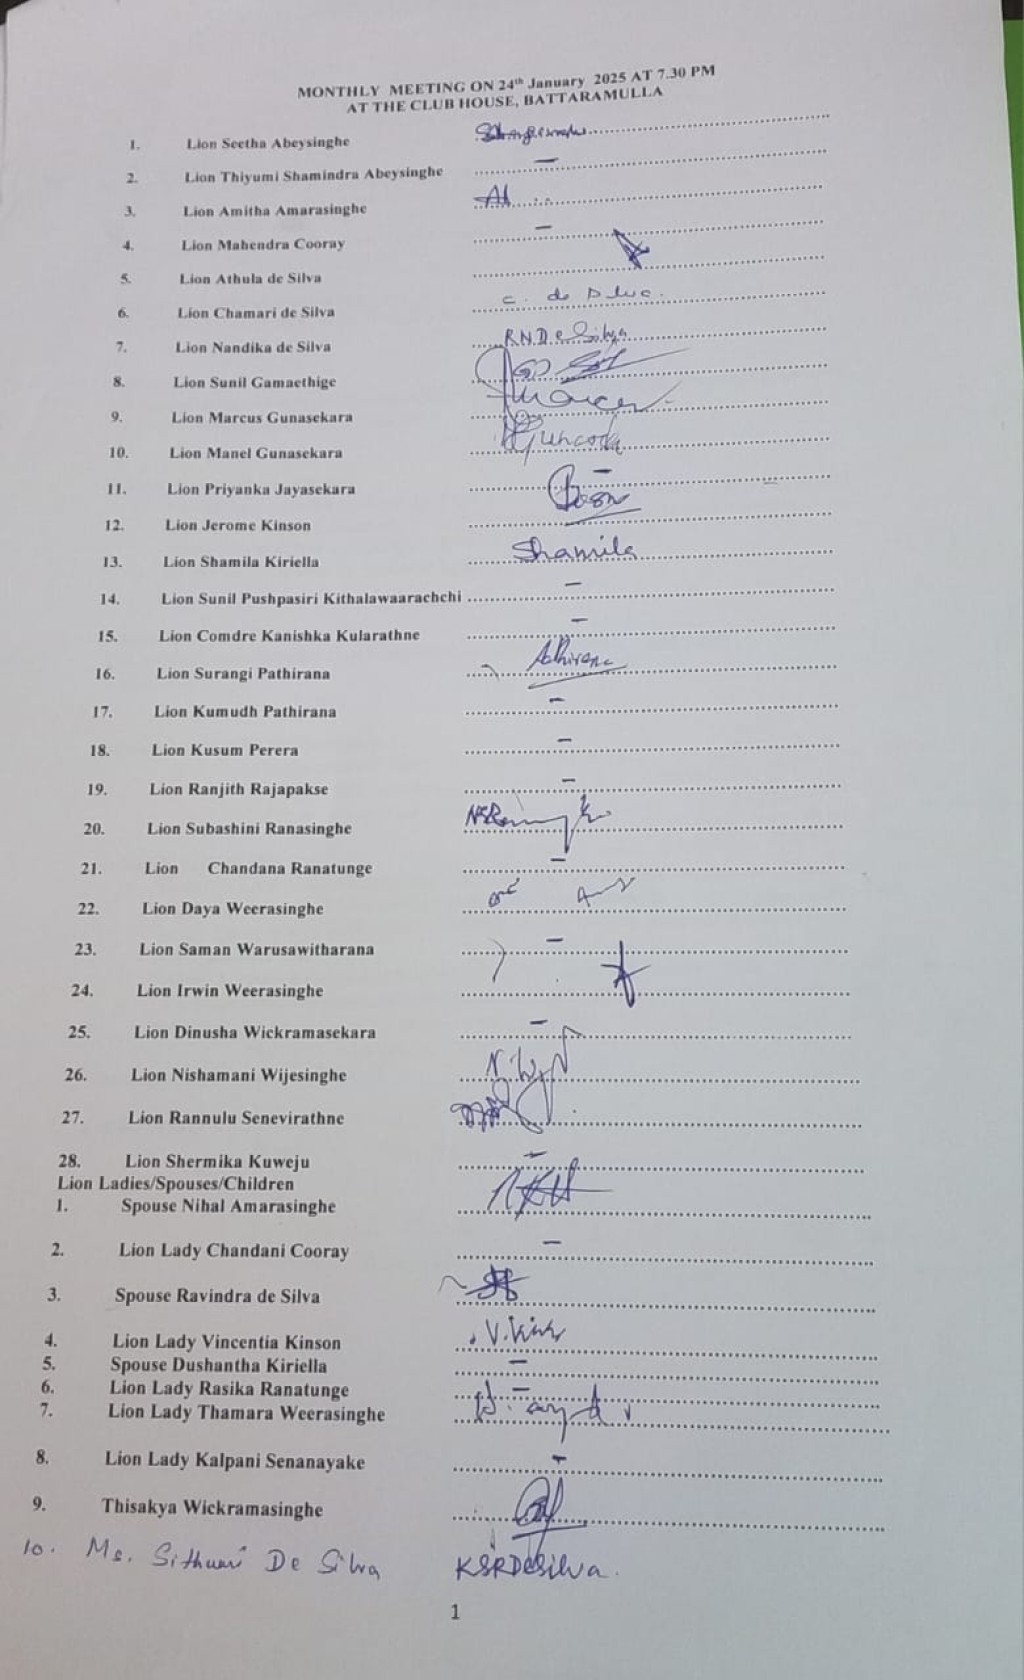 MONTHLY MEETING ON 24th January 2025 AT 7.30 PM
AT THE CLUB HOUSE, BATTARAMULLA
1. Lion Seetha Abeysinghe
2. Lion Thiyumi Shamindra Abeysinghe –
3. Lion Amitha Amarasinghe
4. Lion Mahendra Cooray –
5. Lion Athula de Silva
6. Lion Chamari de Silva C. de Silva.
7. Lion Nandika de Silva R.N.De Silva
8. Lion Sunil Gamaethige
9. Lion Marcus Gunasekara
10. Lion Manel Gunasekara
11. Lion Priyanka Jayasekara –
12. Lion Jerome Kinson
13. Lion Shamila Kiriella Shamila
14. Lion Sunil Pushpasiri Kithalawaarachchi –
15. Lion Comdre Kanishka Kularathne –
16. Lion Surangi Pathirana
17. Lion Kumudh Pathirana –
18. Lion Kusum Perera –
19. Lion Ranjith Rajapakse –
20. Lion Subashini Ranasinghe
21. Lion Chandana Ranatunge –
22. Lion Daya Weerasinghe
23. Lion Saman Warusawitharana –
24. Lion Irwin Weerasinghe
25. Lion Dinusha Wickramasekara –
26. Lion Nishamani Wijesinghe
27. Lion Rannulu Senevirathne
28. Lion Shermika Kuweju –
Lion Ladies/Spouses/Children
1. Spouse Nihal Amarasinghe
2. Lion Lady Chandani Cooray –
3. Spouse Ravindra de Silva
4. Lion Lady Vincentia Kinson
5. Spouse Dushantha Kiriella –
6. Lion Lady Rasika Ranatunge –
7. Lion Lady Thamara Weerasinghe
8. Lion Lady Kalpani Senanayake –
9. Thisakya Wickramasinghe
10. Ms. Sithumi De Silva KSRDeSilva.
1